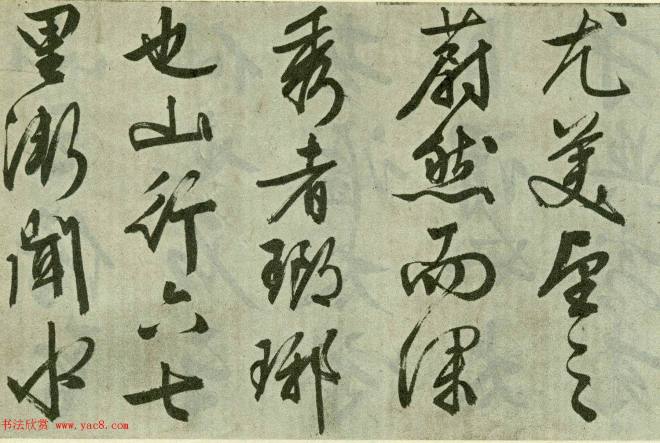 尤美望之
蔚然而深
秀者瑯琊
也山行六七
里漸聞水
书法欣赏 www.yac8.com